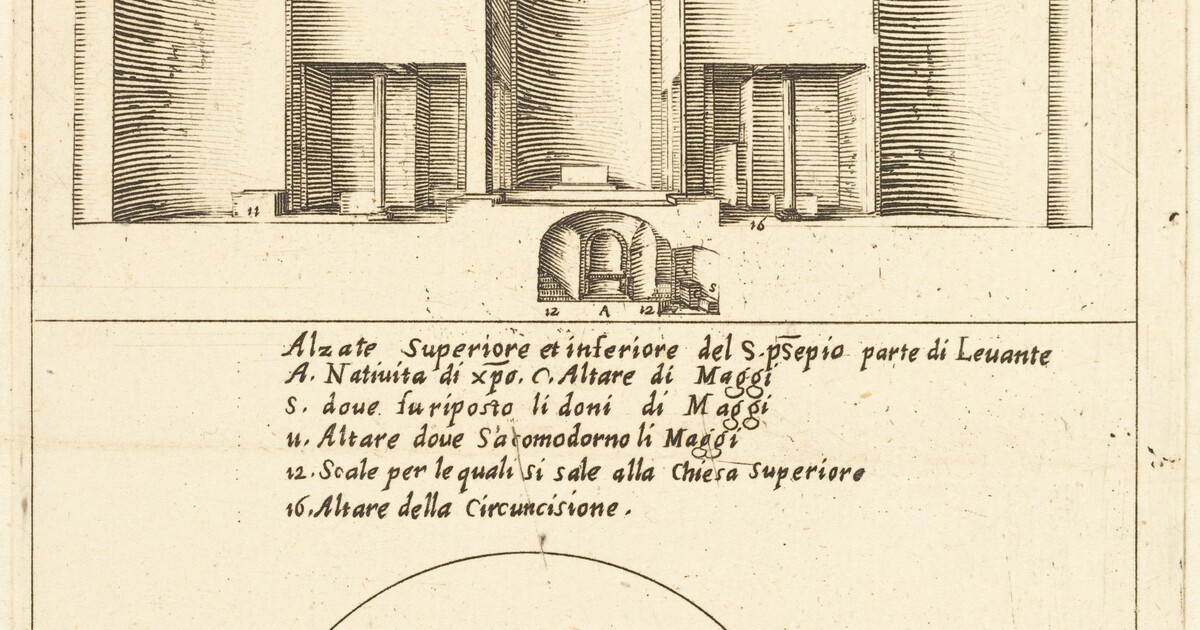 11
16
S
12 A 12
Alzate Superiore et inferiore del S. psepio parte di Leuante
A. Natiuita di xp̄o. C. Altare di Maggi
S. doue fu riposto li doni di Maggi
11. Altare doue S'acomodorno li Maggi
12. Scale per le quali si sale alla Chiesa Superiore
16. Altare della Circuncisione.